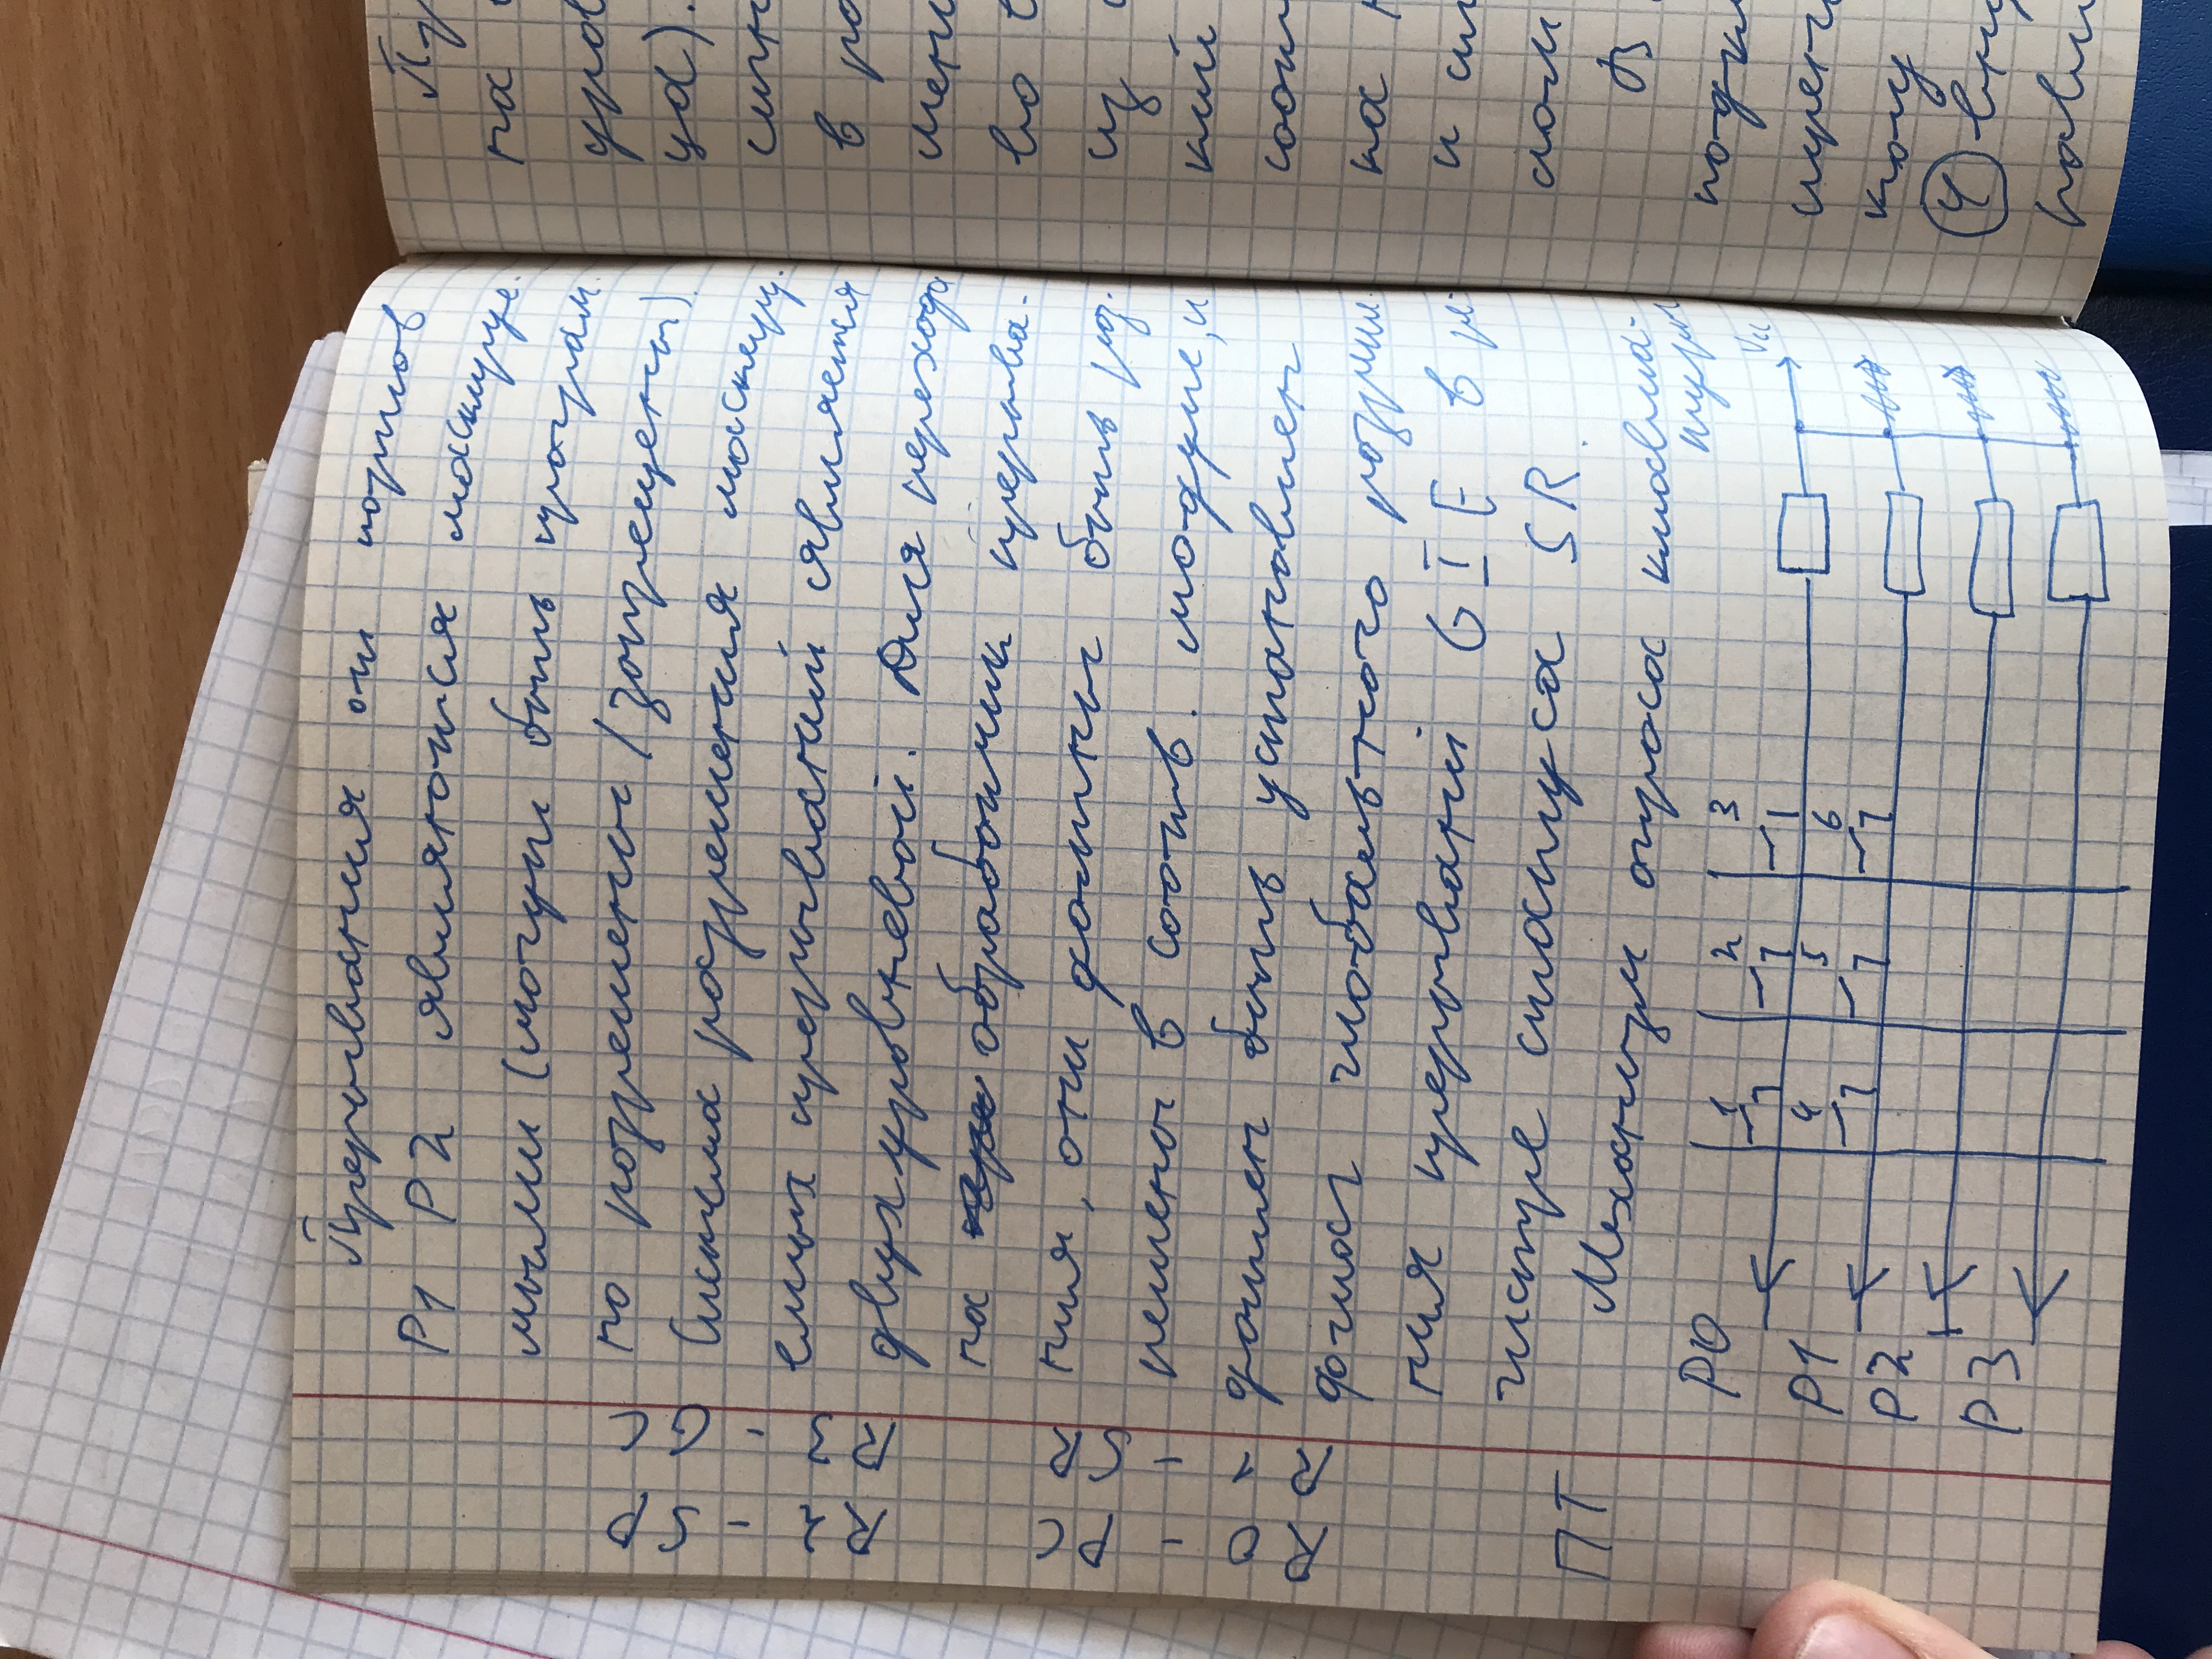 Прерывания от портов
P1 P2 являются маскируе-
мыми (могут быть програм.
но разрешены / запрещены).
Система разрешения маскиру-
емых прерываний является
двухуровневой. Для перехода
на обработчик прерыва-
ния, они должны быть раз-
решены в соотв. модуле, и
должен быть установлен
флаг глобального разреше-
ния прерываний GIE в ре-
гистре статуса SR.
Механизм опроса клавиа-
туры
R0 - PC R2 - SP
R1 - SR R3 - GC
ПТ
P0
1 2 3
Vcc
P1
4 5 6
P2
P3
Пр
на
уров
ца).
сигн
в ра
мен
во в
из
кий
соотв
на
и
лом
В
подкл
4